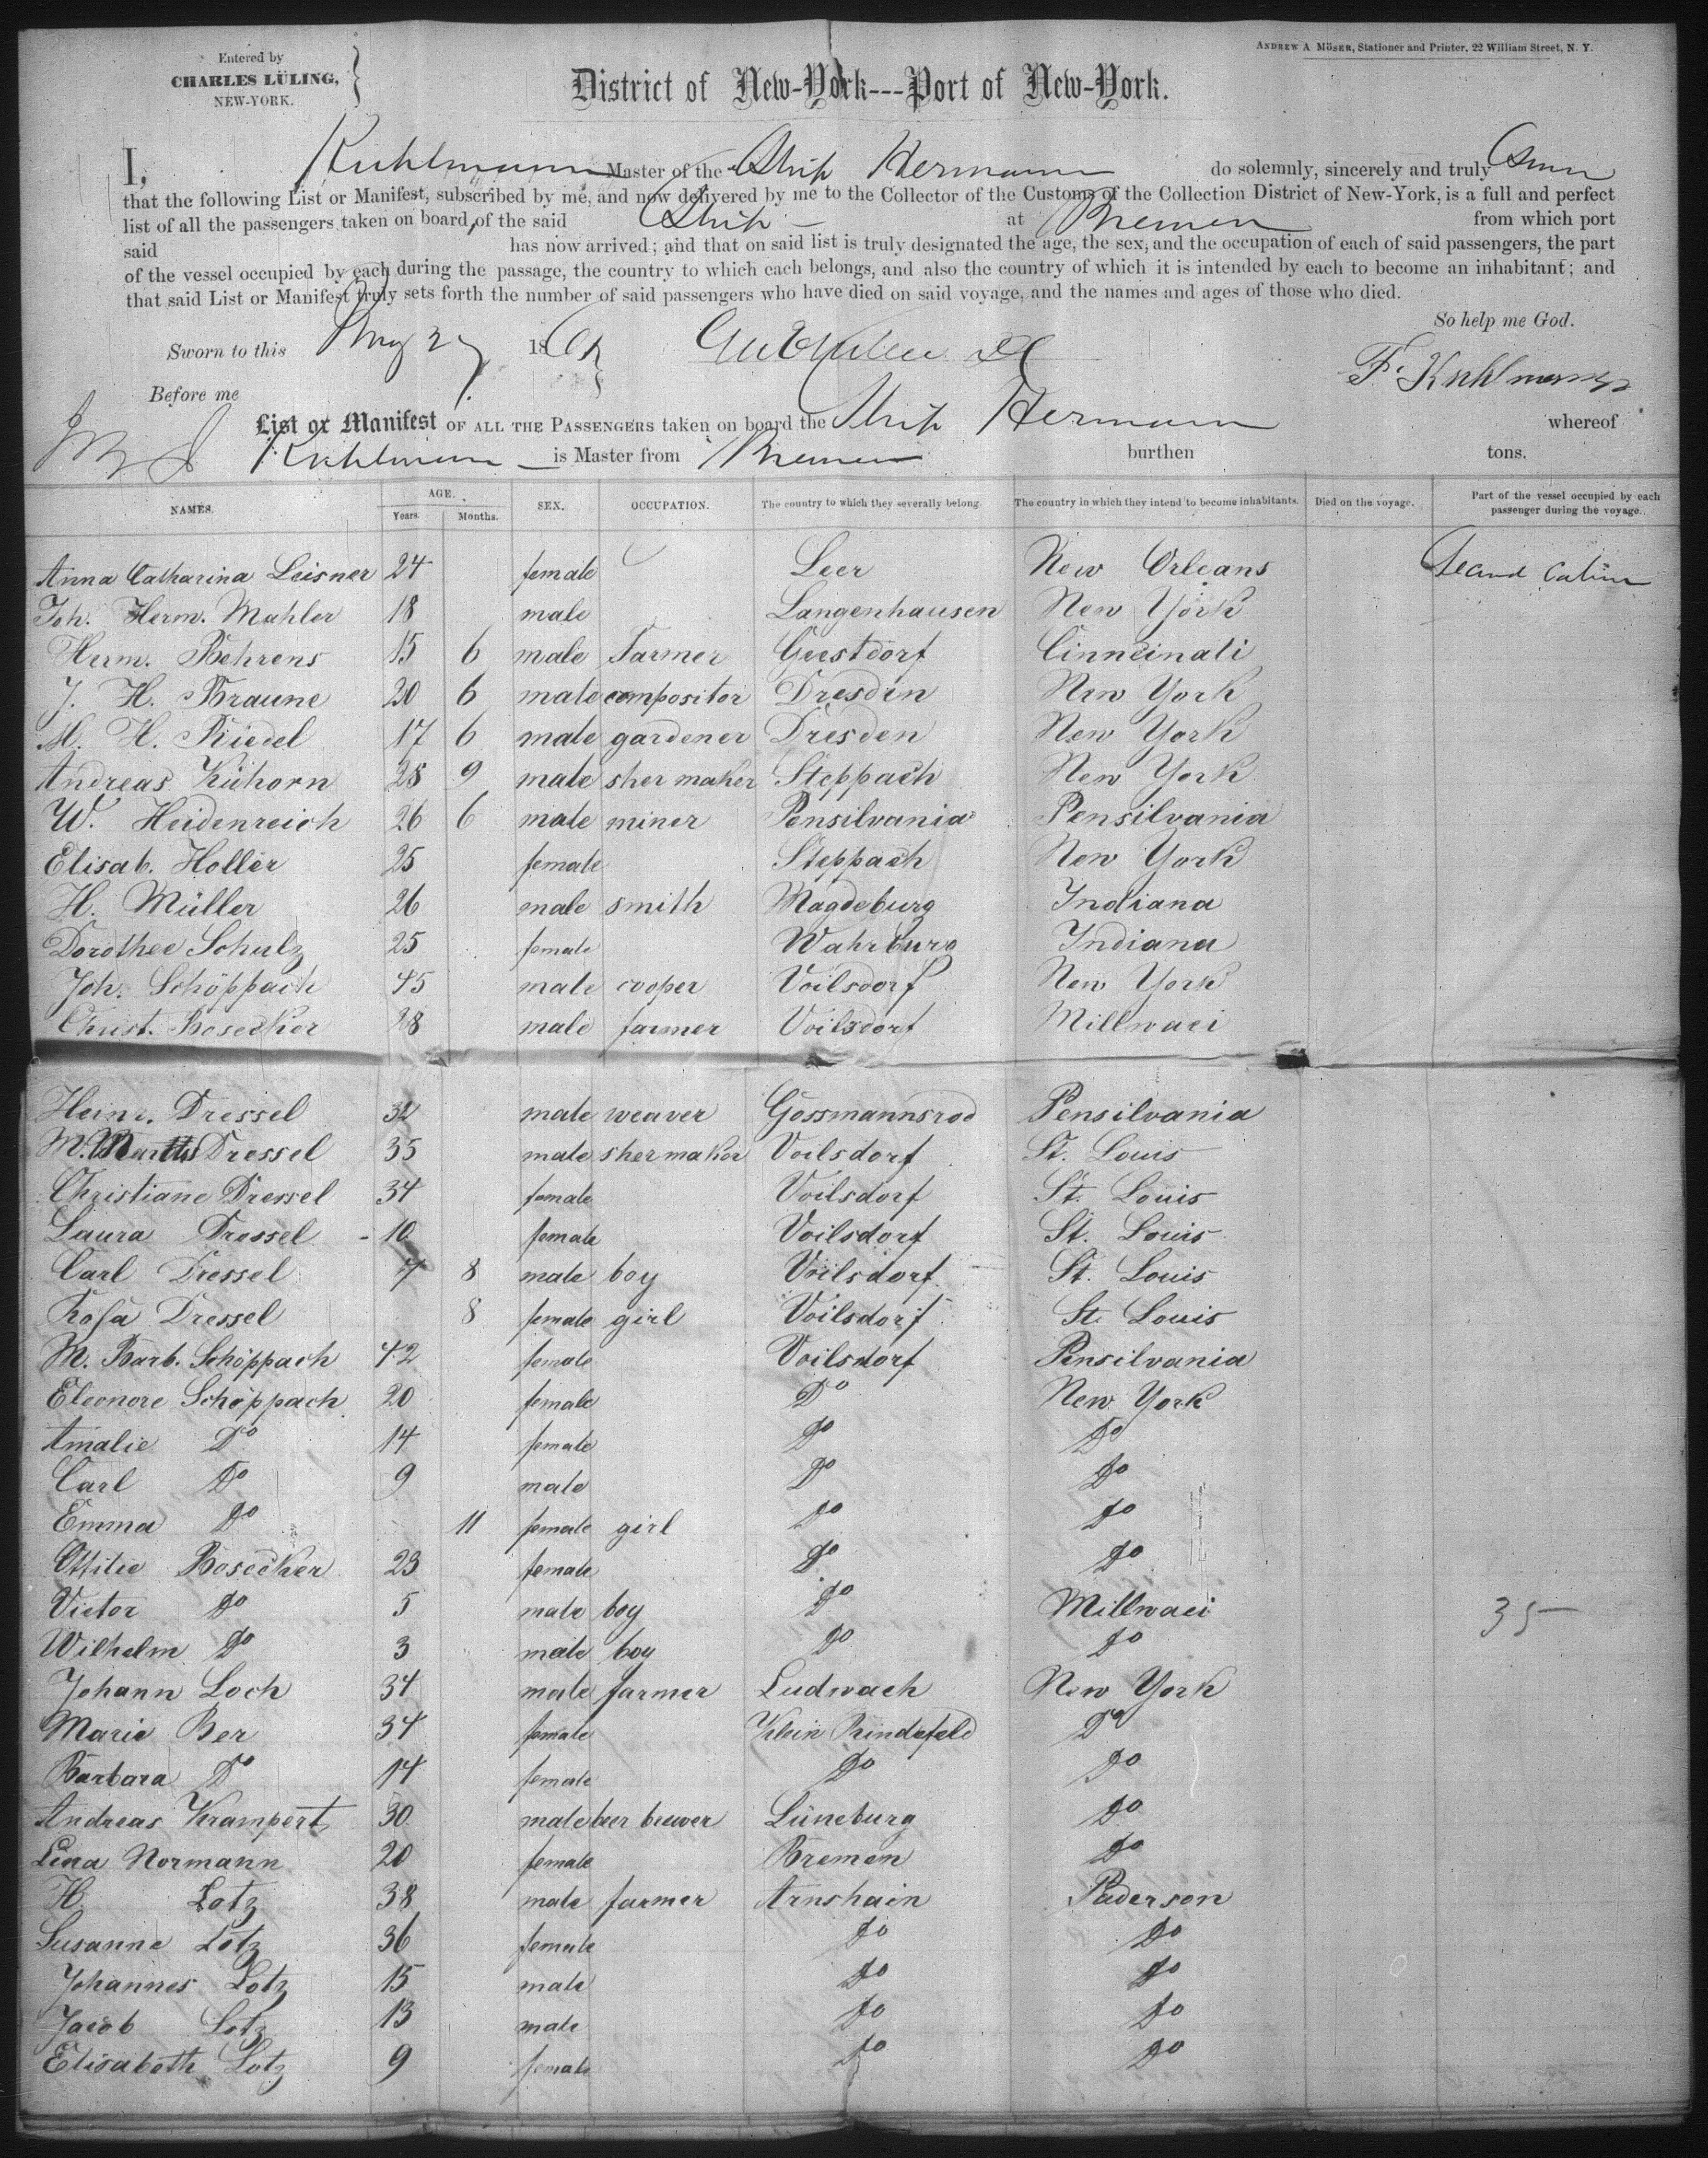 Entered by
CHARLES LÜLING,
NEW-YORK.
ANDREW A MÖSER, Stationer and Printer, 22 William Street, N. Y.
District of New-York---Port of New-York.
I, Kuhlmann Master of the Ship Hermann do solemnly, sincerely and truly
that the following List or Manifest, subscribed by me, and now delivered by me to the Collector of the Customs of the Collection District of New-York, is a full and perfect
list of all the passengers taken on board of the said Ship at Bremen from which port
said has now arrived; and that on said list is truly designated the age, the sex, and the occupation of each of said passengers, the part
of the vessel occupied by each during the passage, the country to which each belongs, and also the country of which it is intended by each to become an inhabitant; and
that said List or Manifest truly sets forth the number of said passengers who have died on said voyage, and the names and ages of those who died.
So help me God.
Sworn to this May 27 18
F. Kuhlmann
Before me
List or Manifest OF ALL THE PASSENGERS taken on board the Ship Hermann whereof
Kuhlmann is Master from Bremen burthen tons.
NAMES. AGE. Years. Months. SEX. OCCUPATION. The country to which they severally belong. The country in which they intend to become inhabitants. Died on the voyage. Part of the vessel occupied by each passenger during the voyage.
Anna Catharina Leisner 24 female Leer New Orleans Second Cabin
Joh. Herm. Mahler 18 male Langenhausen New York
Herm. Behrens 15 6 male Farmer Geestdorf Cinncinati
J. H. Braune 20 6 male compositor Dresden New York
M. H. Riedel 17 6 male gardener Dresden New York
Andreas Kühorn 28 9 male sher maker Steppach New York
W. Heidenreich 26 6 male miner Pensilvania Pensilvania
Elisab. Holler 25 female Steppach New York
H. Müller 26 male smith Magdeburg Indiana
Dorothee Schulz 25 female Wahrburg Indiana
Joh. Schöppach 45 male cooper Voilsdorf New York
Christ. Bosecker 28 male farmer Voilsdorf Millwaei
Heinr. Dressel 32 male weaver Gossmannsrod Pensilvania
M. Dressel 35 male sher maker Voilsdorf St. Louis
Christiane Dressel 34 female Voilsdorf St. Louis
Laura Dressel - 10 female Voilsdorf St. Louis
Carl Dressel 7 8 male boy Voilsdorf St. Louis
Rosa Dressel 8 female girl Voilsdorf St. Louis
M. Barb. Schöppach 42 female Voilsdorf Pensilvania
Eleonore Schöppach 20 female Do New York
Amalie Do 14 female Do Do
Carl Do 9 male Do Do
Emma Do 11 female girl Do Do
Ottilie Bosecker 23 female Do Do
Victor Do 5 male boy Do Millwaei 35
Wilhelm Do 3 male boy Do Do
Johann Loch 34 male farmer Ludwach New York
Marie Ber 34 female Klein Rindefeld Do
Barbara Do 14 female Do Do
Andreas Krampert 30 male beer brewer Lüneburg Do
Lina Normann 20 female Bremen Do
H. Lotz 38 male farmer Arnshain Paderson
Susanne Lotz 36 female Do Do
Johannes Lotz 15 male Do Do
Jacob Lotz 13 male Do Do
Elisabeth Lotz 9 female Do Do